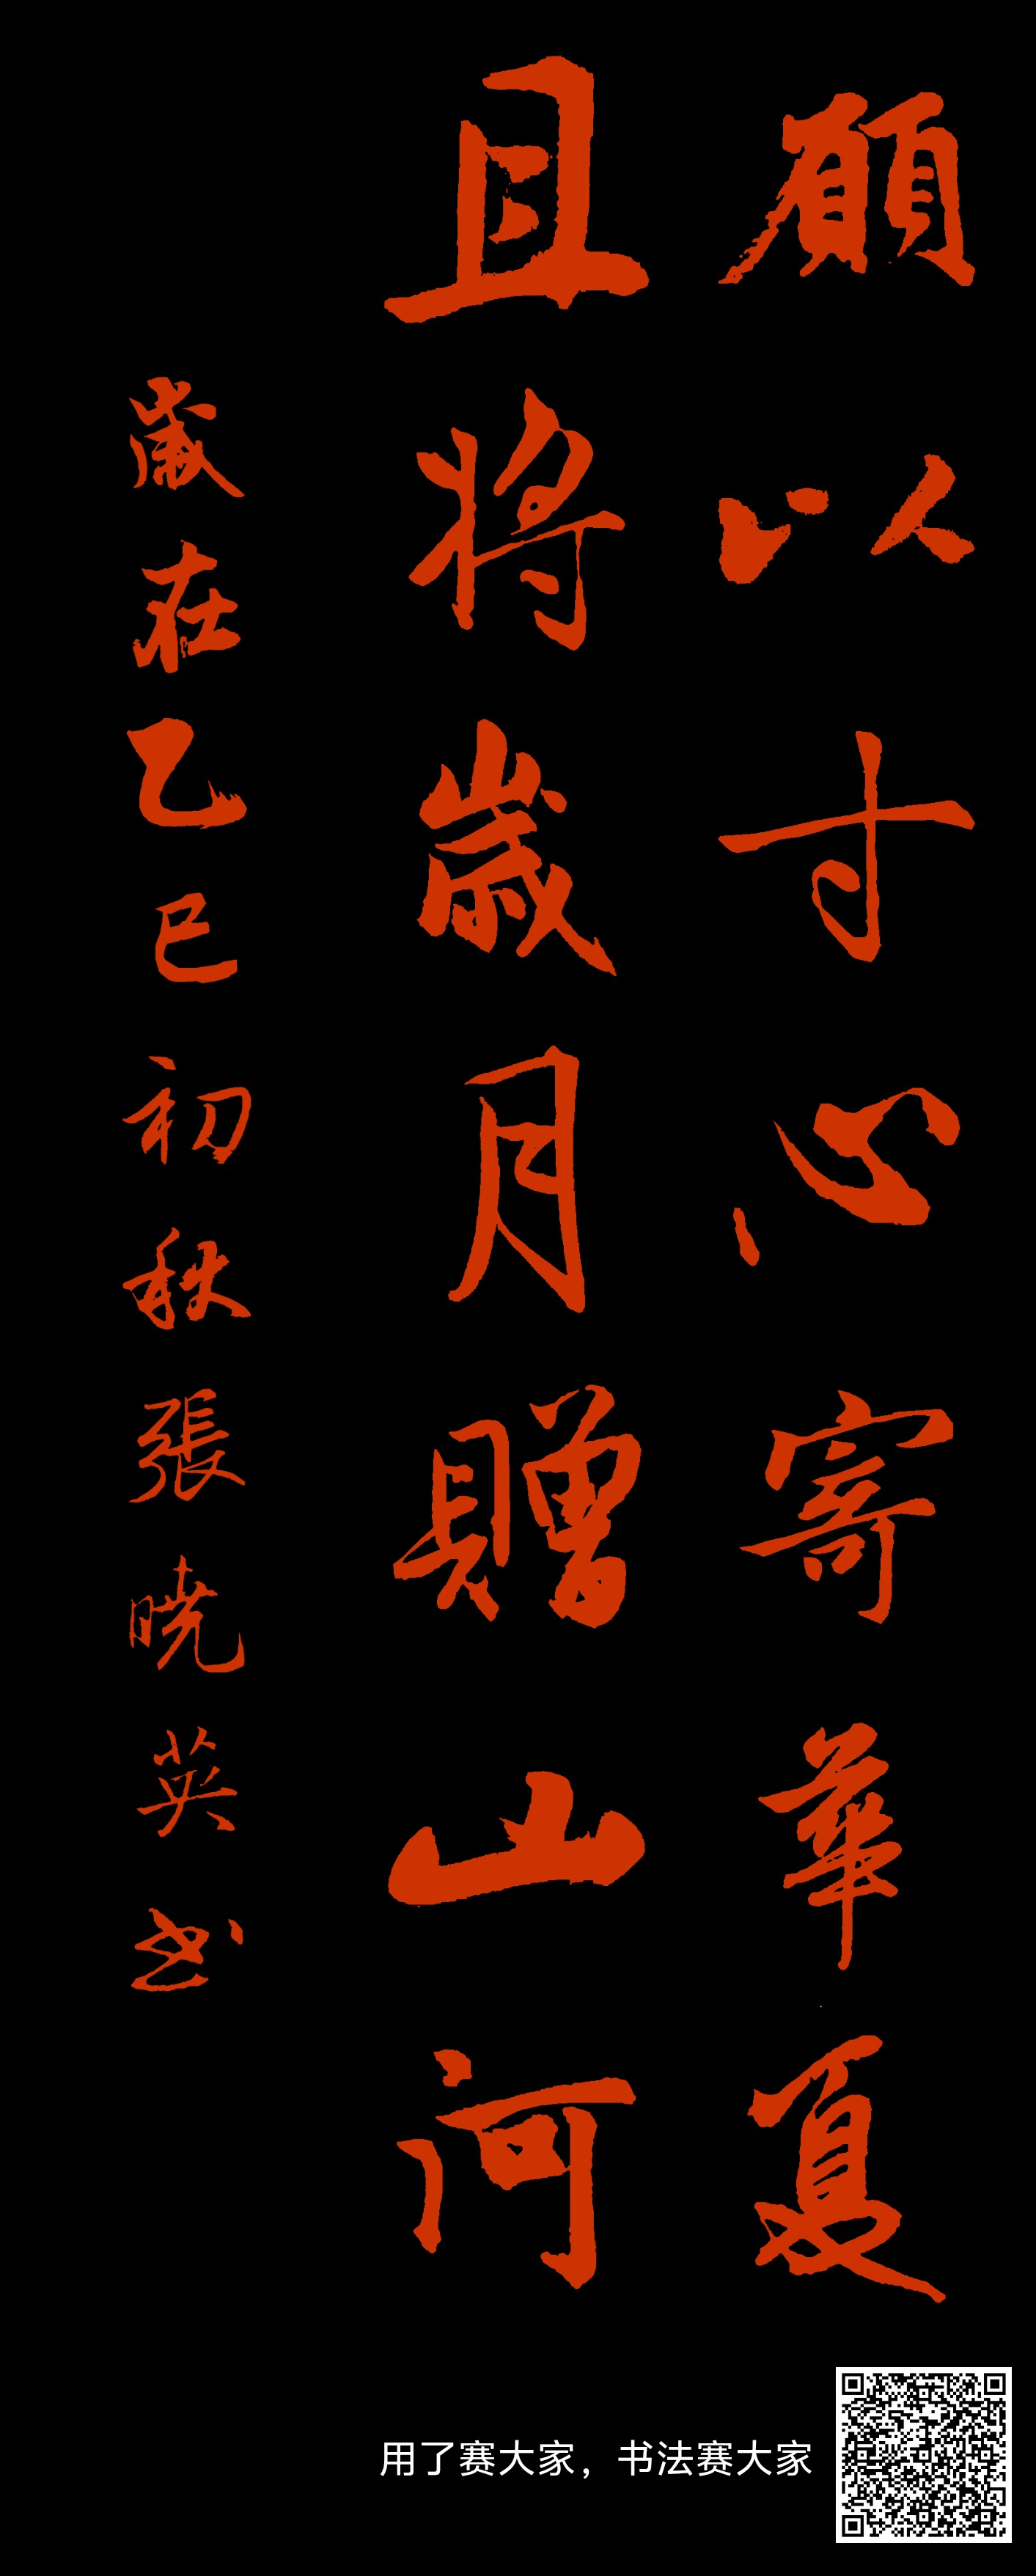 願以寸心寄華夏
且将歲月贈山河
歲在乙巳初秋張暁英书
用了赛大家，书法赛大家